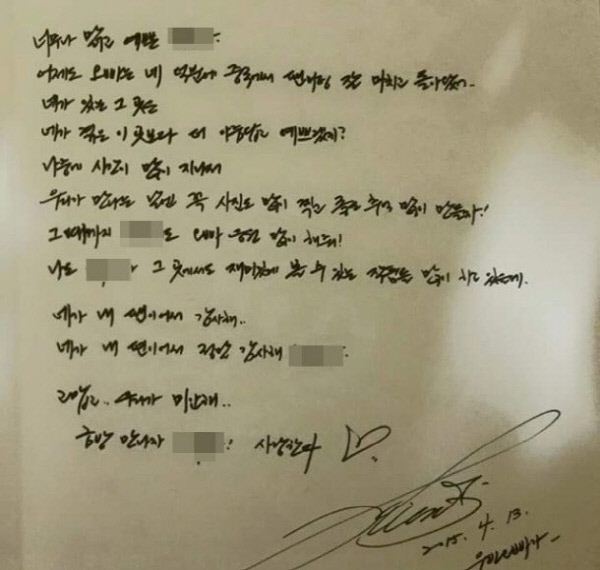 너무나 맑고 예쁜
어제도 오빠는 네 덕분에 중국에서 팬미팅 잘 마치고 돌아왔어..
네가 있는 그 곳은
네가 겪은 이 곳보다 더 아름답고 예쁘겠지?
나중에 시간이 많이 지나서
우리가 만나는 날엔 꼭 사진도 많이 찍고 좋은 추억 많이 만들자!
그때까지 도 오빠 응원 많이 해줘!
나도 그 곳에서도 재미있게 볼 수 있는 작품들 많이 하고 있을게.
네가 내 팬이어서 감사해..
네가 내 팬이어서 정말 감사해
고맙고.. 미안해..
금방 만나자 ! 사랑한다 ♡
2015. 4. 13.
오빠가